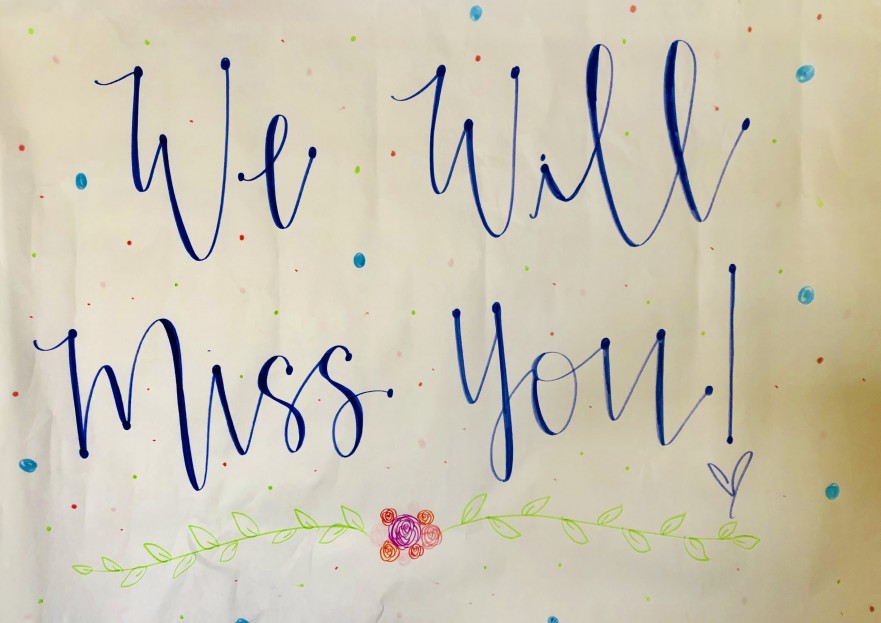 We Will
Miss You!